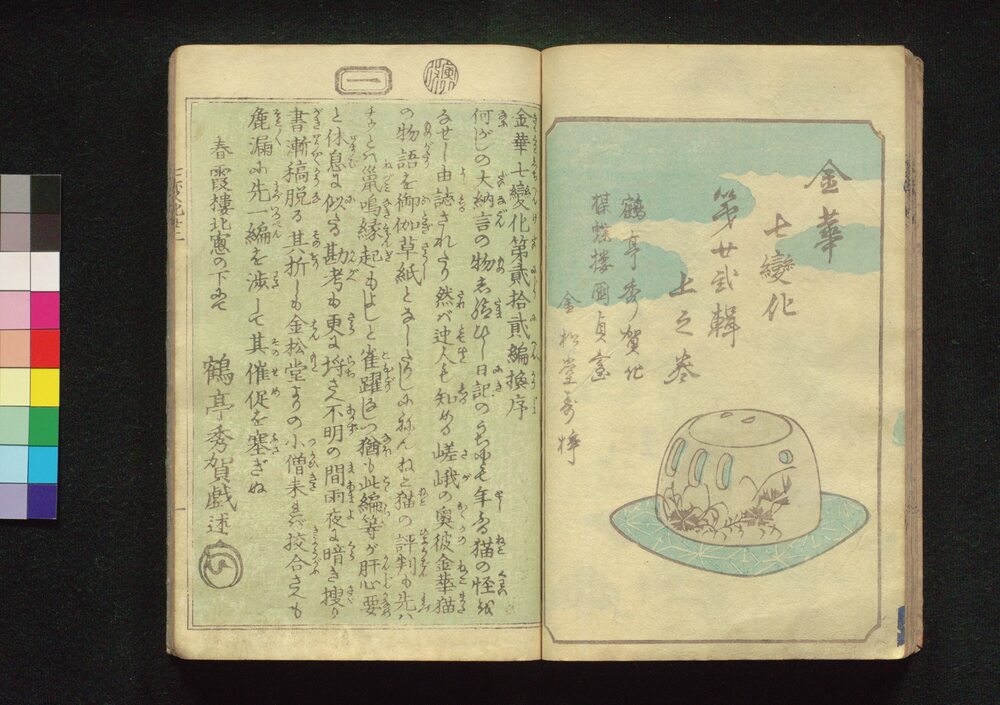 金華
七變化
第廿弐輯
上之巻
鶴亭秀賀作
楳蝶楼國貞画
金松堂寿梓
一
金華七變化第貳拾貳編換序
何がしの大納言の物し給ひし日記のうちにも年ふる猫の怪を
なせし由誌されたり然ば世人も知める嵯峨の奥彼金華猫
の物語を御伽草紙となしたりしにねんねと猫の評判も先ハ
チウとハ鼠鳴縁起もよしと雀躍しつ猶も此編等が肝心要
と休息に似たる勘考も更に埒さへ不明の間雨夜に暗き捜り
書漸稿脱る其折しも金松堂よりの小僧来急校合さへも
麁漏に先一編を渉して其催促を塞ぎぬ
春霞楼北窓の下にて
鶴亭秀賀戯述